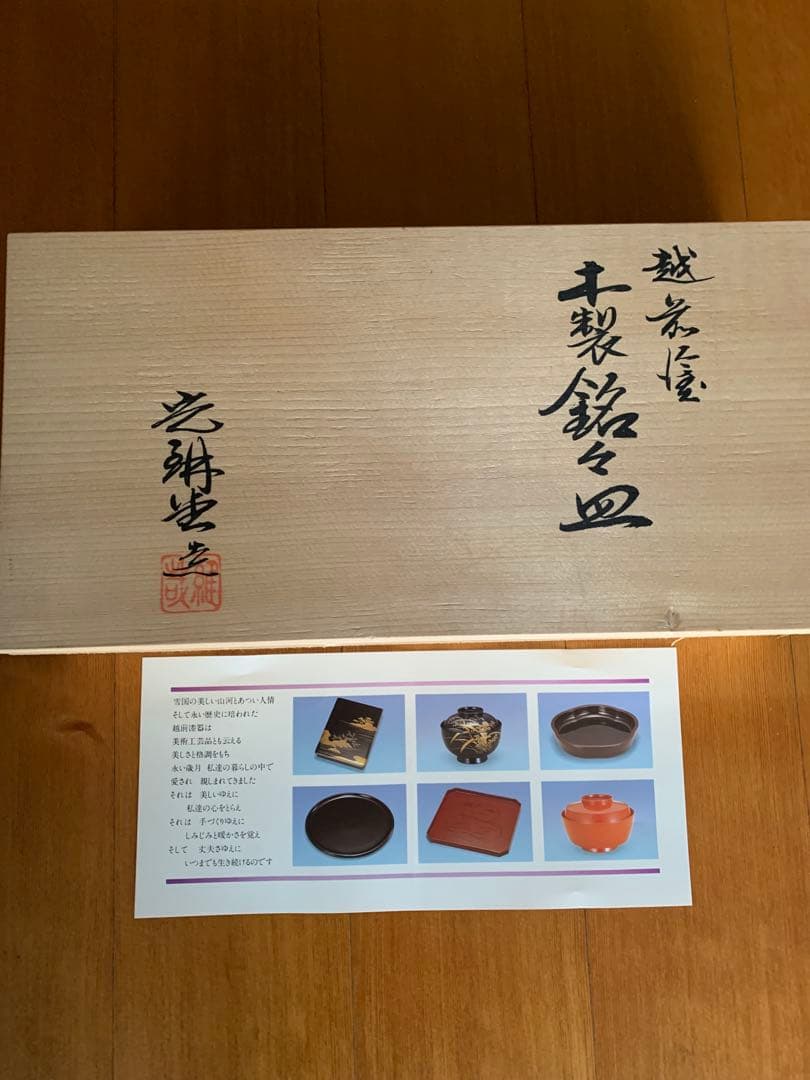 越前塗
木製銘々皿
光琳堂造
雪国の美しい山河とあつい人情
そして永い歴史に培われた
越前漆器は
美術工芸品とも云える
美しさと格調をもち
永い歳月　私達の暮らしの中で
愛され　親しまれてきました
それは　美しいゆえに
私達の心をとらえ
それは　手づくりゆえに
しみじみと暖かさを覚え
そして　丈夫さゆえに
いつまでも生き続けるのです